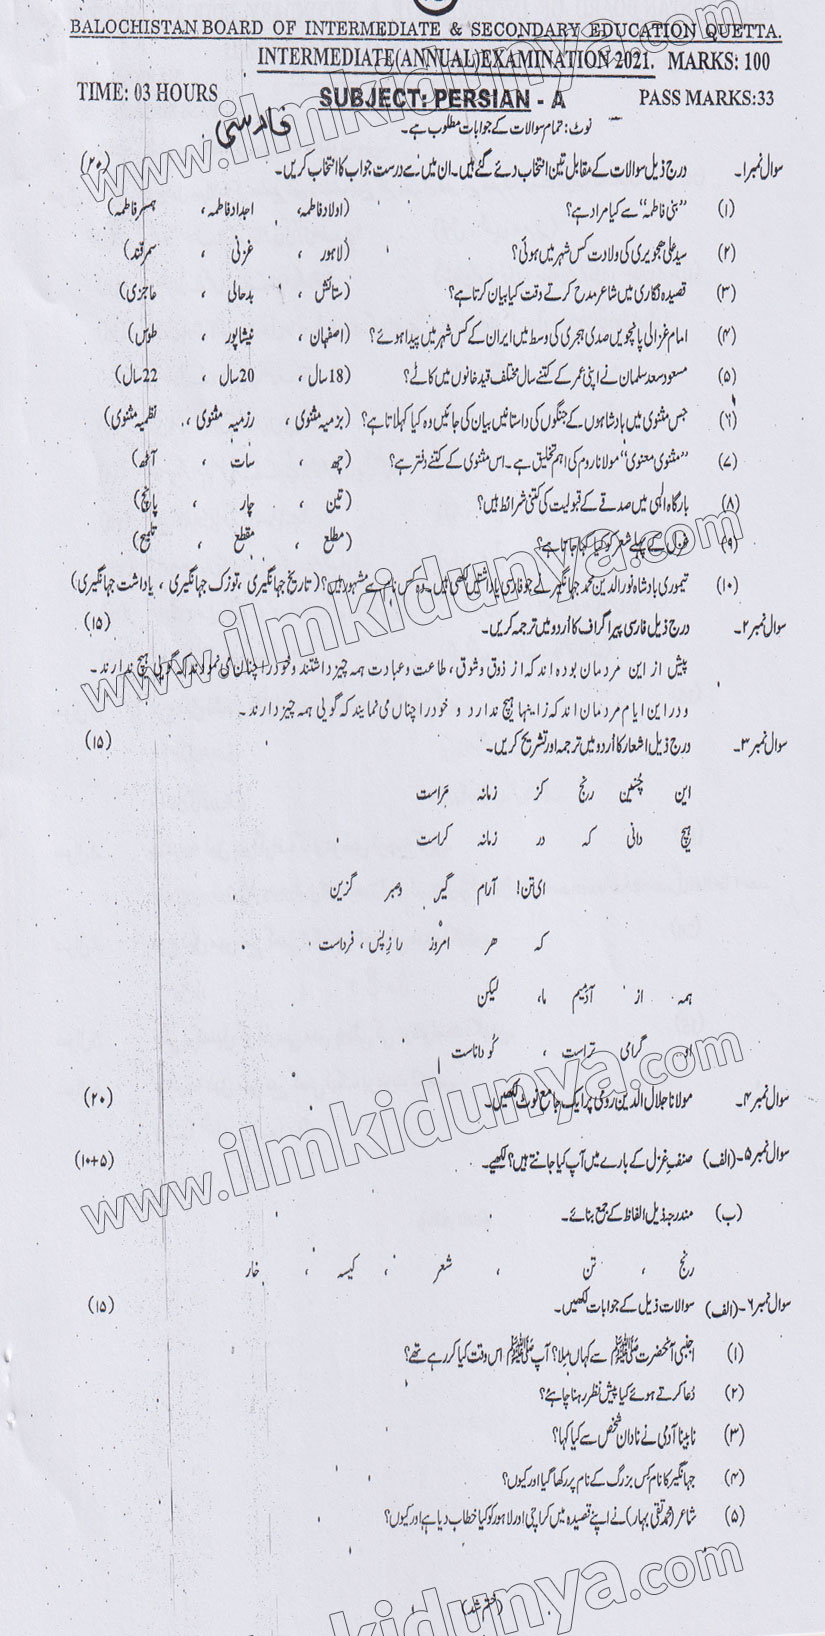 BALOCHISTAN BOARD OF INTERMEDIATE & SECONDARY EDUCATION QUETTA.
INTERMEDIATE(ANNUAL)EXAMINATION 2021. MARKS: 100
TIME: 03 HOURS SUBJECT: PERSIAN - A PASS MARKS:33
فارسی نوٹ: تمام سوالات کے جوابات مطلوب ہے۔
سوال نمبر ۱۔ درج ذیل سوالات کے مقابل تین انتخاب دئے گئے ہیں۔ ان میں سے درست جواب کا انتخاب کریں۔ (۲۰)
(۱) "بنی فاطمہ" سے کیا مراد ہے؟ (اولاد فاطمہ، اجداد فاطمہ، ہمسر فاطمہ)
(۲) سید علی ھجویری کی ولادت کس شہر میں ہوئی؟ (لاہور ، غزنی ، سمرقند)
(۳) قصیدہ نگاری میں شاعر مدح کرتے وقت کیا بیان کرتا ہے؟ (ستائش ، بدحالی ، عاجزی)
(۴) امام غزالی پانچویں صدی ہجری کی وسط میں ایران کے کس شہر میں پیدا ہوئے؟ (اصفہان ، نیشاپور ، طوس)
(۵) مسعود سعد سلمان نے اپنی عمر کے کتنے سال مختلف قید خانوں میں کاٹے؟ (18سال ، 20سال ، 22سال)
(۶) جس مثنوی میں بادشاہوں کے جنگوں کی داستانیں بیان کی جائیں وہ کیا کہلاتا ہے؟ (بزمیہ مثنوی ، رزمیہ مثنوی ، نظمیہ مثنوی)
(۷) "مثنوی معنوی" مولانا روم کی اہم تخلیق ہے۔ اس مثنوی کے کتنے دفتر ہے؟ (چھ ، سات ، آٹھ)
(۸) بارگاہ الٰہی میں صدقے کے قبولیت کی کتنی شرائط ہیں؟ (تین ، چار ، پانچ)
(۹) غزل کے پہلے شعر کو کیا کہا جاتا ہے؟ (مطلع ، مقطع ، تلمیح)
(۱۰) تیموری بادشاہ نور الدین محمد جہانگیر نے جو فارسی یاداشتیں لکھی ہیں۔ وہ کس نام سے مشہور ہیں؟ (تاریخ جہانگیری ، توزک جہانگیری ، یاداشت جہانگیری)
سوال نمبر ۲۔ درج ذیل فارسی پیراگراف کا اُردو میں ترجمہ کریں۔ (۱۵)
پیش از این مردمان بوده اند که از ذوق و شوق ، طاعت و عبادت همه چیز داشتند و خود را چنان می نمودند که گویی هیچ ندارند ۔
و در این ایام مردمان اند که زاینها هیچ ندارد و خود را چنان می نمایند که گویی همه چیز دارند ۔
سوال نمبر ۳۔ درج ذیل اشعار کا اُردو میں ترجمہ اور تشریح کریں۔ (۱۵)
این چُنین رنج کز زمانه مَراست
هیچ دانی که در زمانه کراست
ای تن! آرام گیر و صبر گزین
که هر امروز را ز پس ، فرداست
همه از آدمیم ما، لیکن
او گرامی تراست ، کُو داناست
سوال نمبر ۴۔ مولانا جلال الدین رومیؒ پر ایک جامع نوٹ لکھیں۔ (۲۰)
سوال نمبر ۵۔ (الف) صنفِ غزل کے بارے میں آپ کیا جانتے ہیں؟ لکھیے۔ (۱۰+۵)
(ب) مندرجہ ذیل الفاظ کے جمع بنائے۔
رنج ، تن ، شعر ، کیسہ ، خار
سوال نمبر ۶۔ (الف) سوالات ذیل کے جوابات لکھیں۔ (۱۵)
(۱) اجنبی آنحضرت ﷺ سے کہاں ملا؟ آپ ﷺ اس وقت کیا کر رہے تھے؟
(۲) دُعا کرتے ہوئے کیا پیش نظر رہنا چاہئے؟
(۳) نابینا آدمی نے نادان شخص سے کیا کہا؟
(۴) جہانگیر کا نام کس بزرگ کے نام پر رکھا گیا اور کیوں؟
(۵) شاعر (محمد تقی بہار) نے اپنے قصیدہ میں کراچی اور لاہور کو کیا خطاب دیا ہے اور کیوں؟
(ختم شد)
www.ilmkidunya.com
www.ilmkidunya.com
www.ilmkidunya.com
ilmkidunya.com